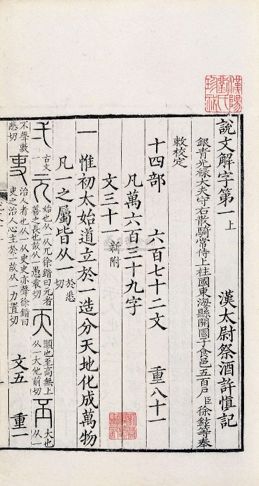 說文解字第一 上
漢太尉祭酒許慎記
銀青光祿大夫守右散騎常侍上柱國東海縣開國子食邑五百戶臣徐鉉等奉
敕校定
十四部 六百七十二文 重八十一
凡萬六百三十九字
文三十一 新附
一 惟初太始道立於一造分天地化成萬物
凡一之屬皆从一 於悉切
弌 古文一 元 始也从一从兀徐鍇曰元者善之長也故从一愚袁切 天 顚也至高無上从一大他前切 丕 大也从一
不聲敷悲切 吏 治人者也从一从史史亦聲徐鍇曰吏之治人心主於一故从一力置切 文五 重一